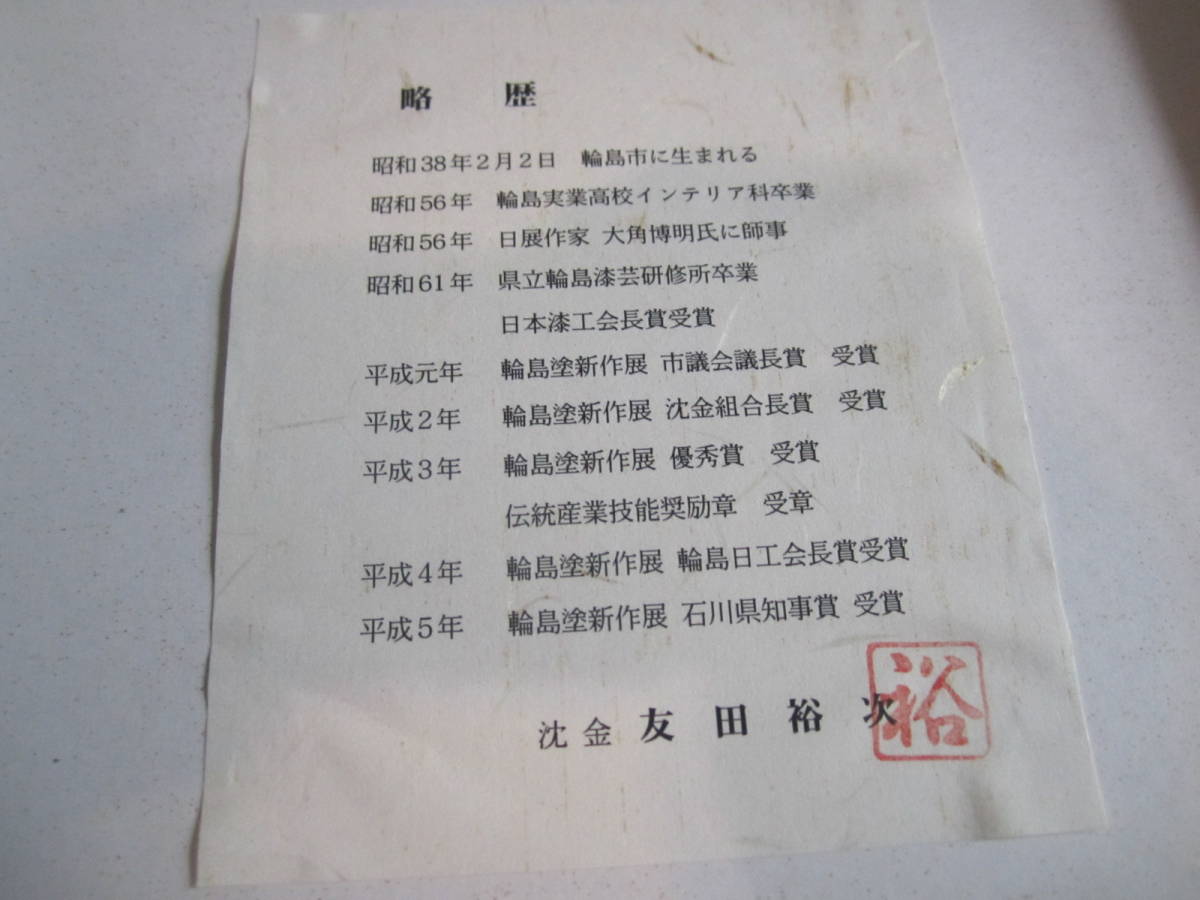 略　歴
昭和38年2月2日　輪島市に生まれる
昭和56年　輪島実業高校インテリア科卒業
昭和56年　日展作家 大角博明氏に師事
昭和61年　県立輪島漆芸研修所卒業
日本漆工会長賞受賞
平成元年　輪島塗新作展 市議会議長賞　受賞
平成2年　輪島塗新作展 沈金組合長賞　受賞
平成3年　輪島塗新作展 優秀賞　受賞
伝統産業技能奨励章　受章
平成4年　輪島塗新作展 輪島日工会長賞受賞
平成5年　輪島塗新作展 石川県知事賞 受賞
沈金 友田裕次
裕